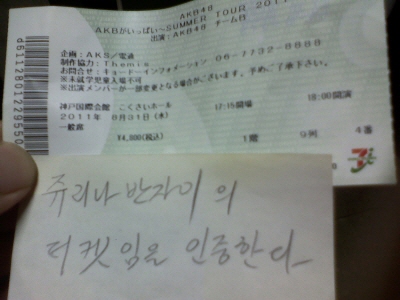 AKB48
AKBがいっぱい~SUMMER TOUR 2011~
出演:AKB48 チームB
企画:AKS/電通
制作協力:Themis
お問合せ:キョードーインフォメーション 06-7732-8888
※未就学児童入場不可
※出演メンバーが一部変更となる場合がございます。予めご了承下さい。
神戸国際会館 こくさいホール 17:15開場 18:00開演
2011年 8月31日(水)
一般席 ¥4,800(税込) 1階 9列 4番
쥬리나반자이의
티켓임을 인증한다_